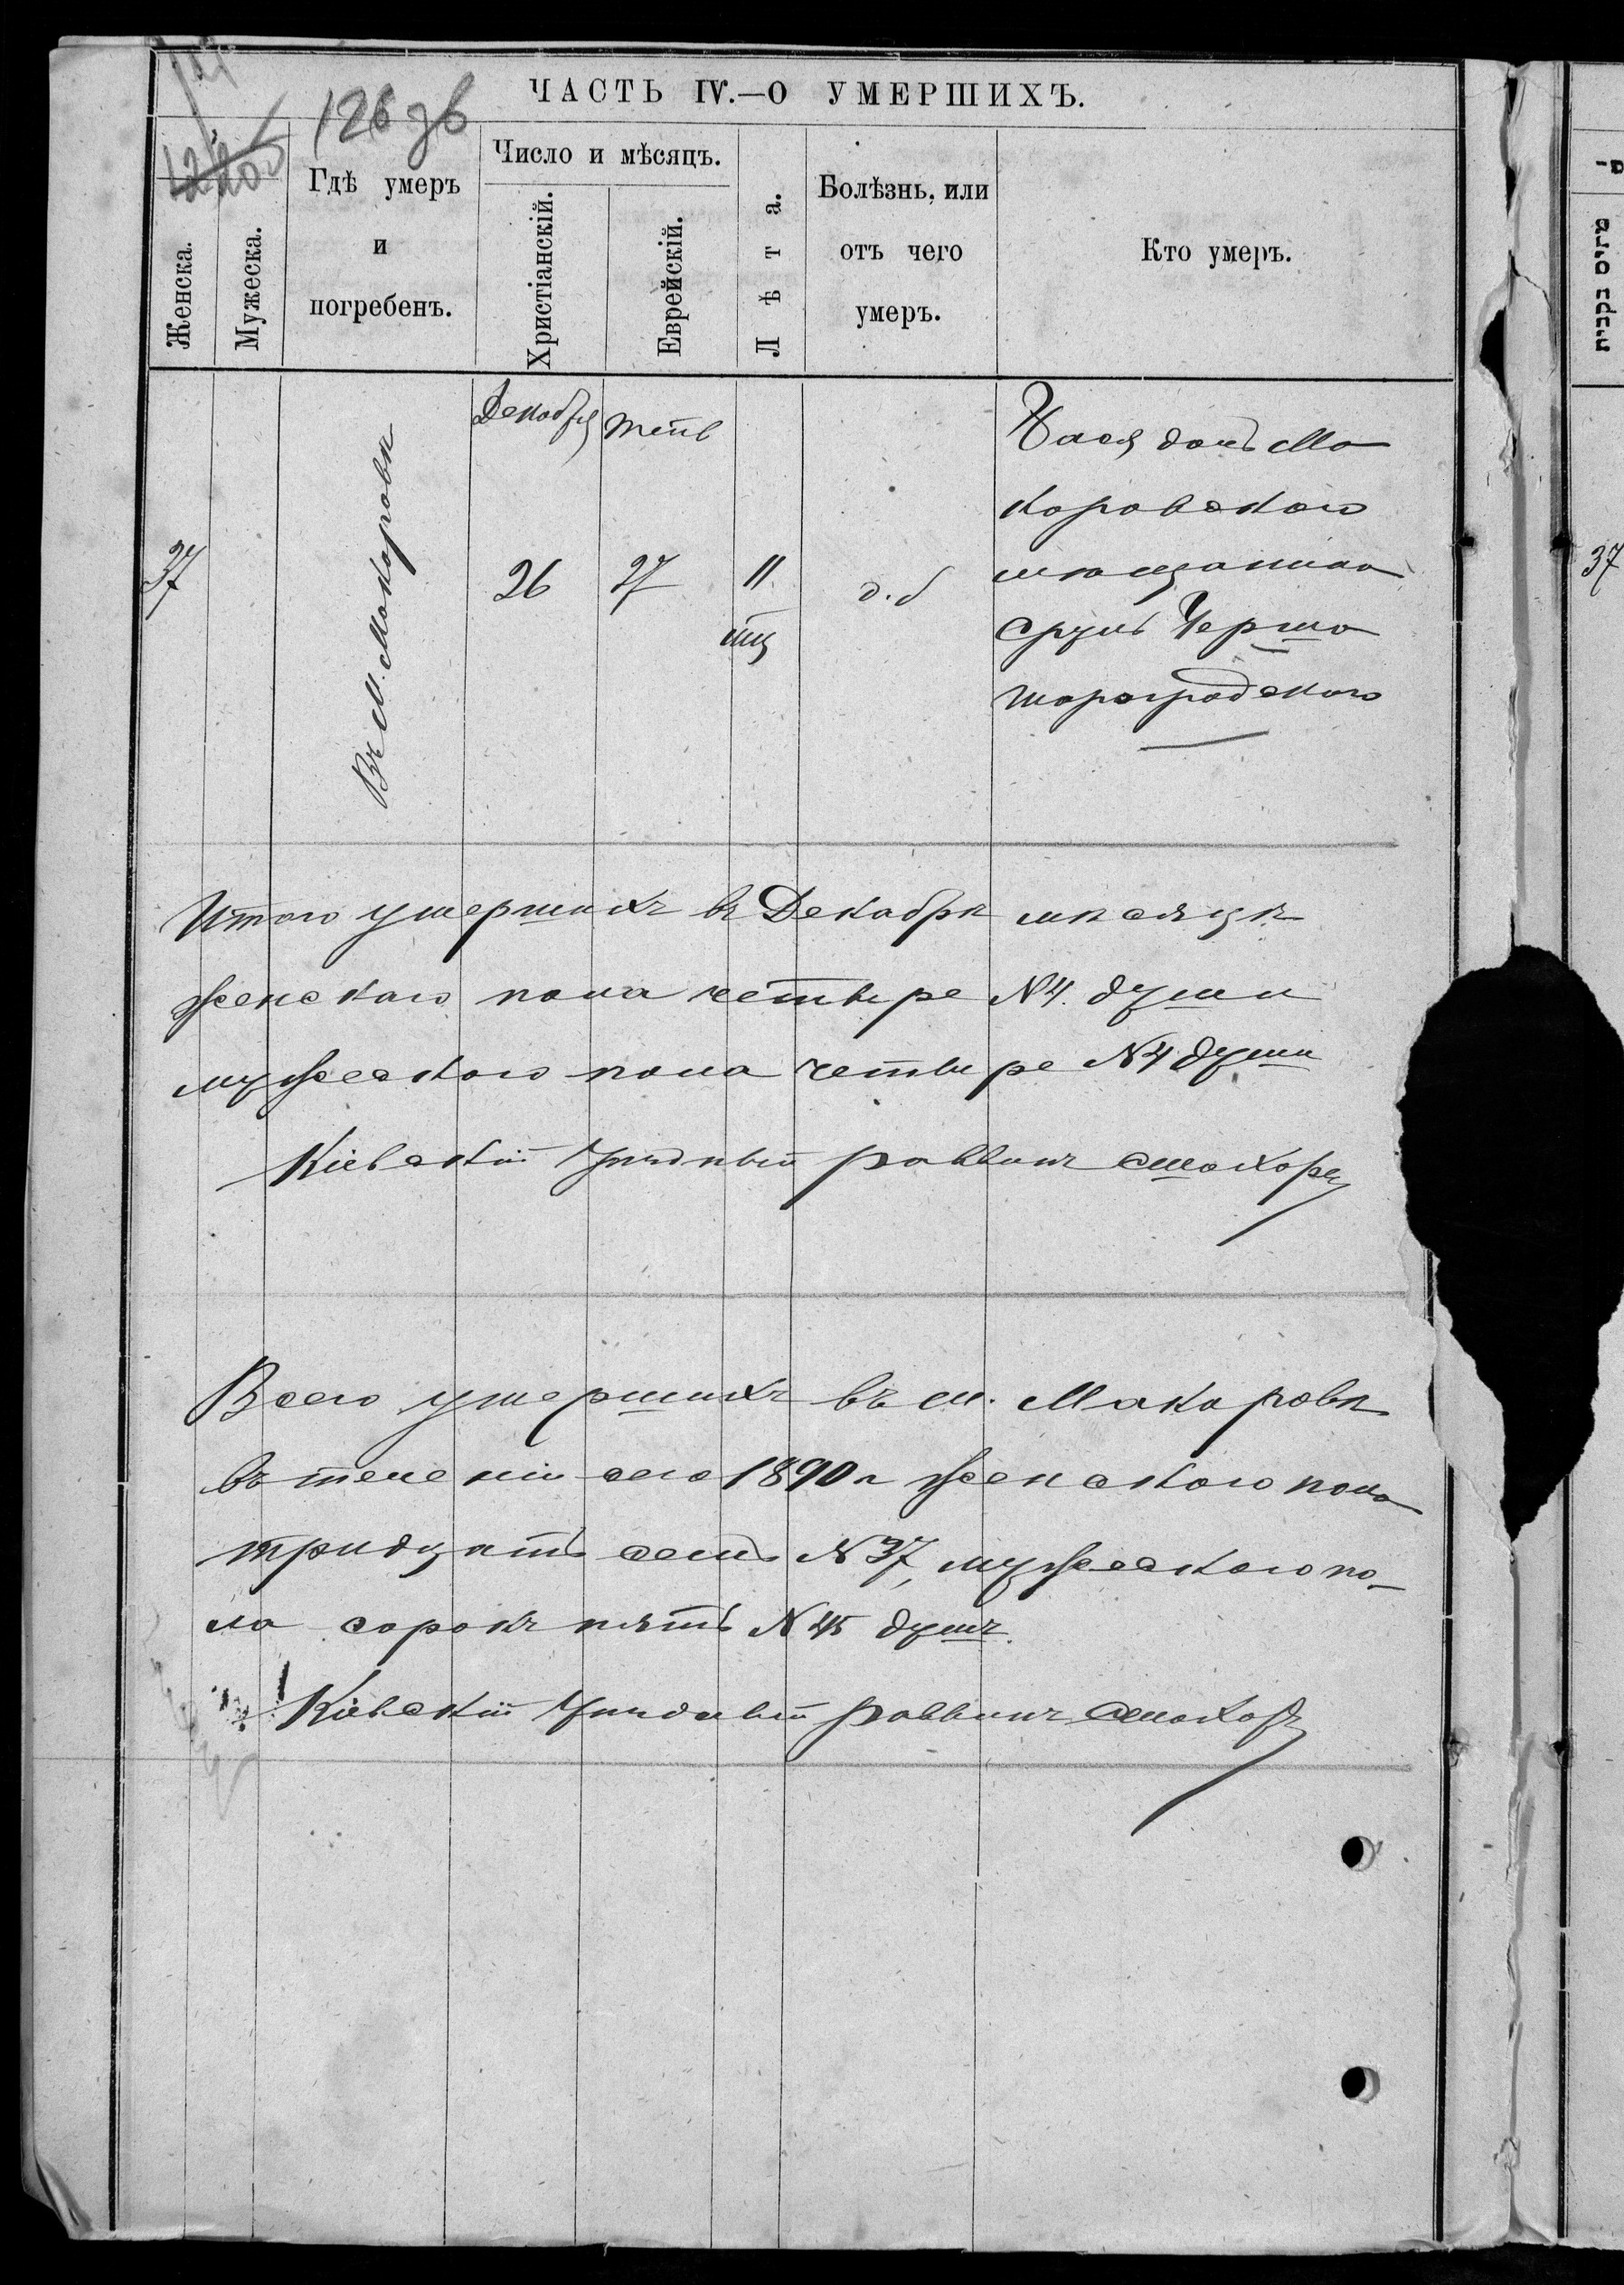 126 зв
ЧАСТЬ IV.—О УМЕРШИХЪ.
Женска.
Мужеска.
Гдѣ умеръ
и
погребенъ.
Число и мѣсяцъ.
Христіанскій.
Еврейскій.
Лѣта.
Болѣзнь, или
отъ чего
умеръ.
Кто умеръ.
37
Въ м. Макаровѣ
Декабря
26
27
11
д. б
Хася дочь Ма
каровскаго
мѣщанина
Сруль Герша
37
Итого умершихъ въ Декабрѣ мѣсяцѣ
женскаго пола четыре N 4. души
мужескаго пола четыре N 4 души
Кіевскій Уѣздный раввинъ
Всего умершихъ въ м. Макаровѣ
въ теченіи сего 1890 г женскаго пола
тридцать семь N 37, мужескаго по-
ла сорокъ пять N 45 душъ.
Кіевскій Уѣздный раввинъ